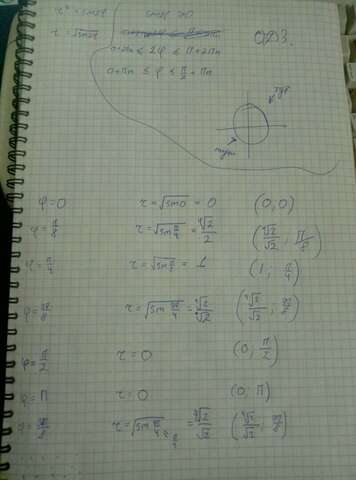 r² = sin2φ
sin2φ ≥ 0
r = √sin2φ
0+2πn ≤ 2φ ≤ π+2πn
ОДЗ.
0+πn ≤ φ ≤ π/2 + πn
φ=0 r = √sin0 = 0 (0,0)
φ=π/8 r = √sin π/4 = ⁴√2/2 (⁴√2/√2; π/8)
φ=π/4 r = √sin π/2 = 1 (1, π/4)
φ=3π/8 r = √sin 3π/4 = ⁴√2/√2 (⁴√2/√2; 3π/8)
φ=π/2 r = 0 (0, π/2)
φ=π r = 0 (0, π)
φ=9π/8 r = √sin 9π/4 = ⁴√2/√2 (⁴√2/√2; 9π/8)